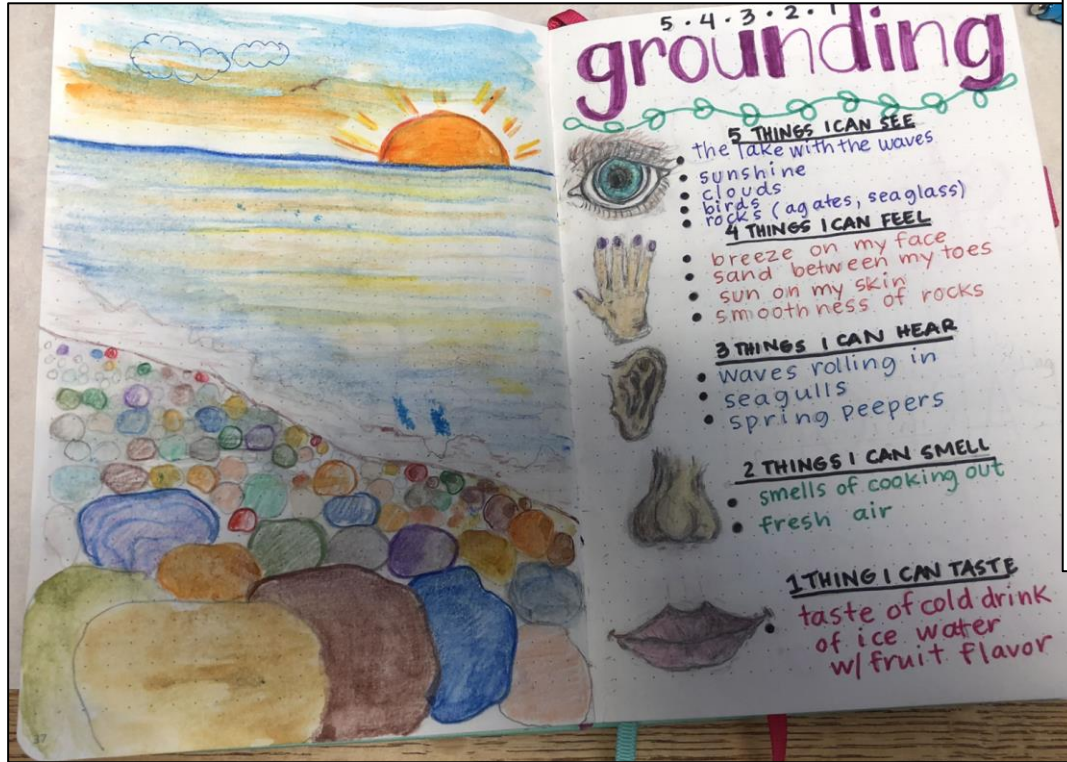 5 · 4 · 3 · 2 · 1
grounding
5 THINGS I CAN SEE
• the lake with the waves
• sunshine
• clouds
• birds
• rocks (agates, seaglass)
4 THINGS I CAN FEEL
• breeze on my face
• sand between my toes
• sun on my skin
• smoothness of rocks
3 THINGS I CAN HEAR
• waves rolling in
• seagulls
• spring peepers
2 THINGS I CAN SMELL
• smells of cooking out
• fresh air
1 THING I CAN TASTE
• taste of cold drink
of ice water
w/ fruit flavor
37